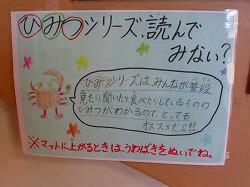 ひみつシリーズ、読んで
みない?
ひみつシリーズは、みんなが普段
見たり、聞いたり、食べたりしているものの
ひみつがわかるので、とっても
オススメだよ!!
※マットに上がるときは、うわばきをぬいでね。